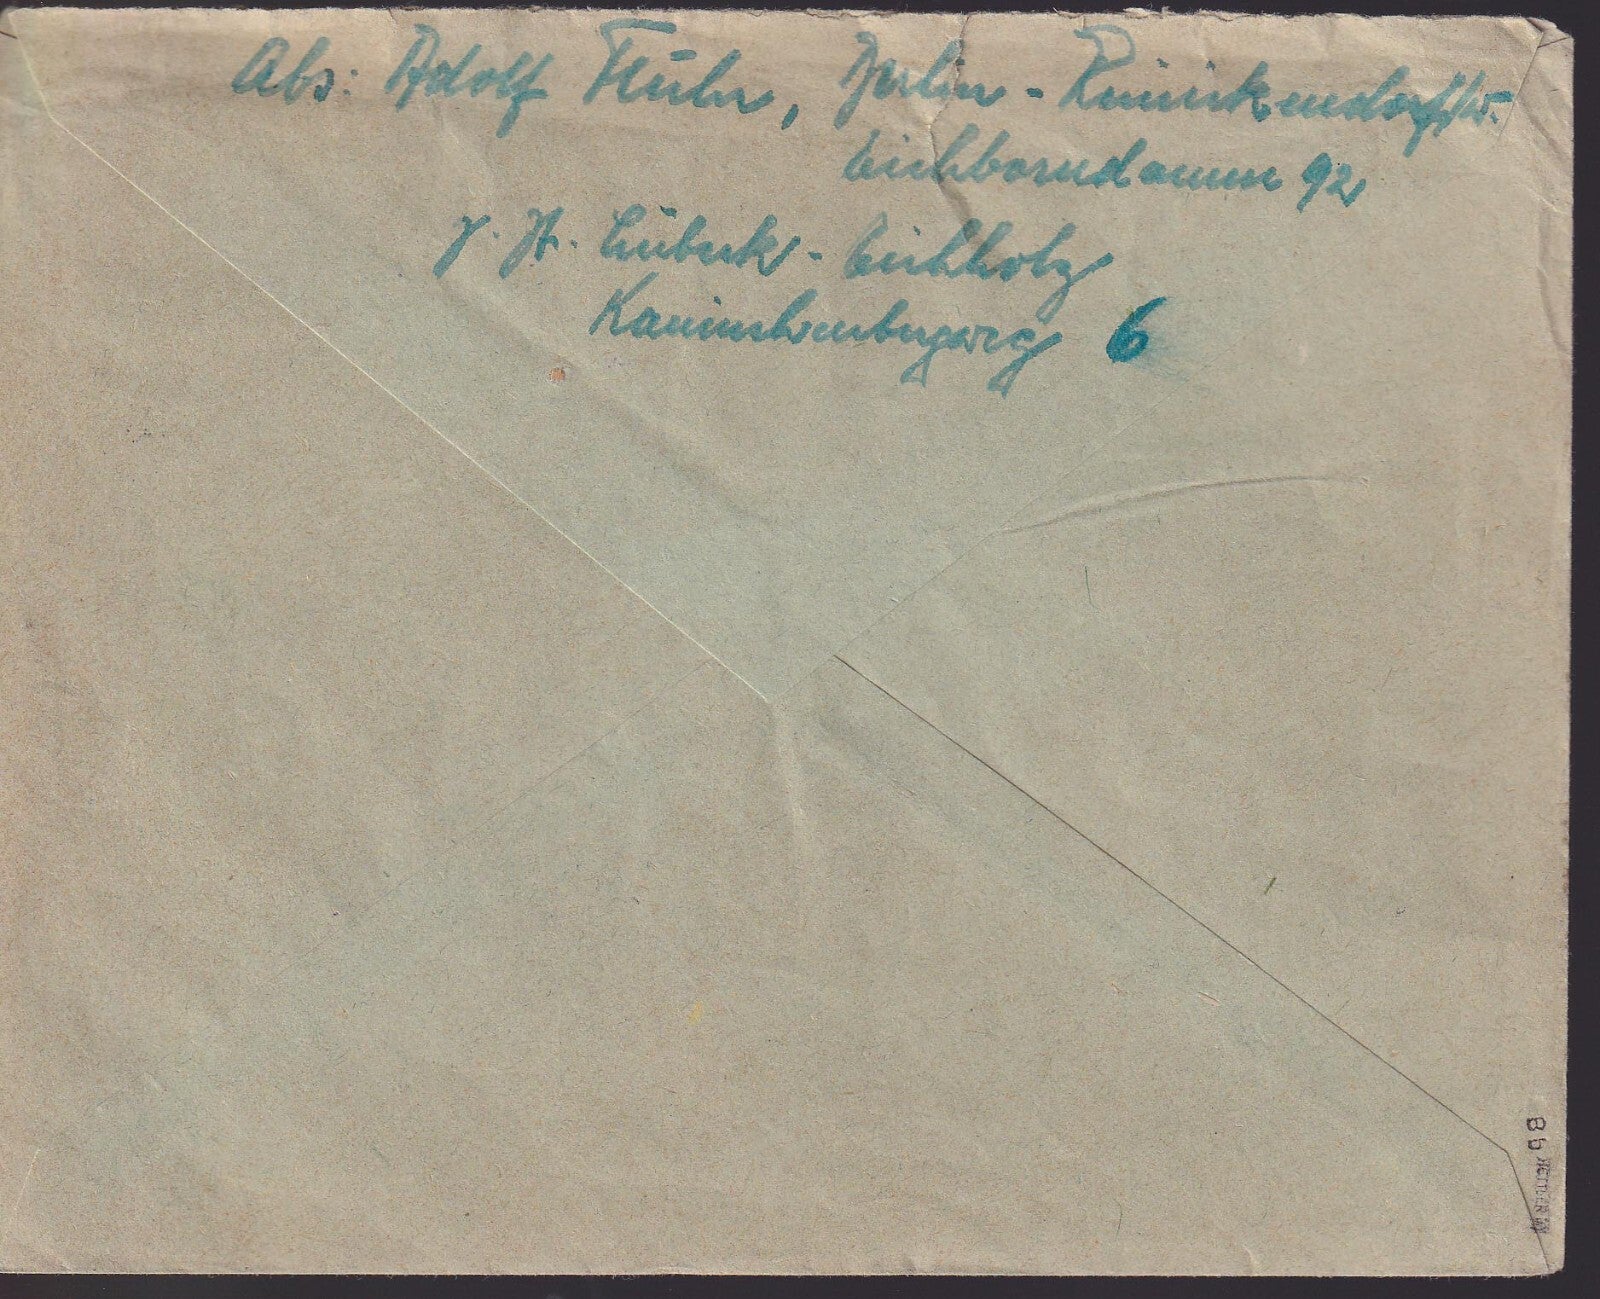 Abs: Adolf Fluhr, Berlin - Reinickendorf/W.
Eichborndamm 92
z. Zt. Lübeck - Eichholz
Kaninchenbergweg 6
8b